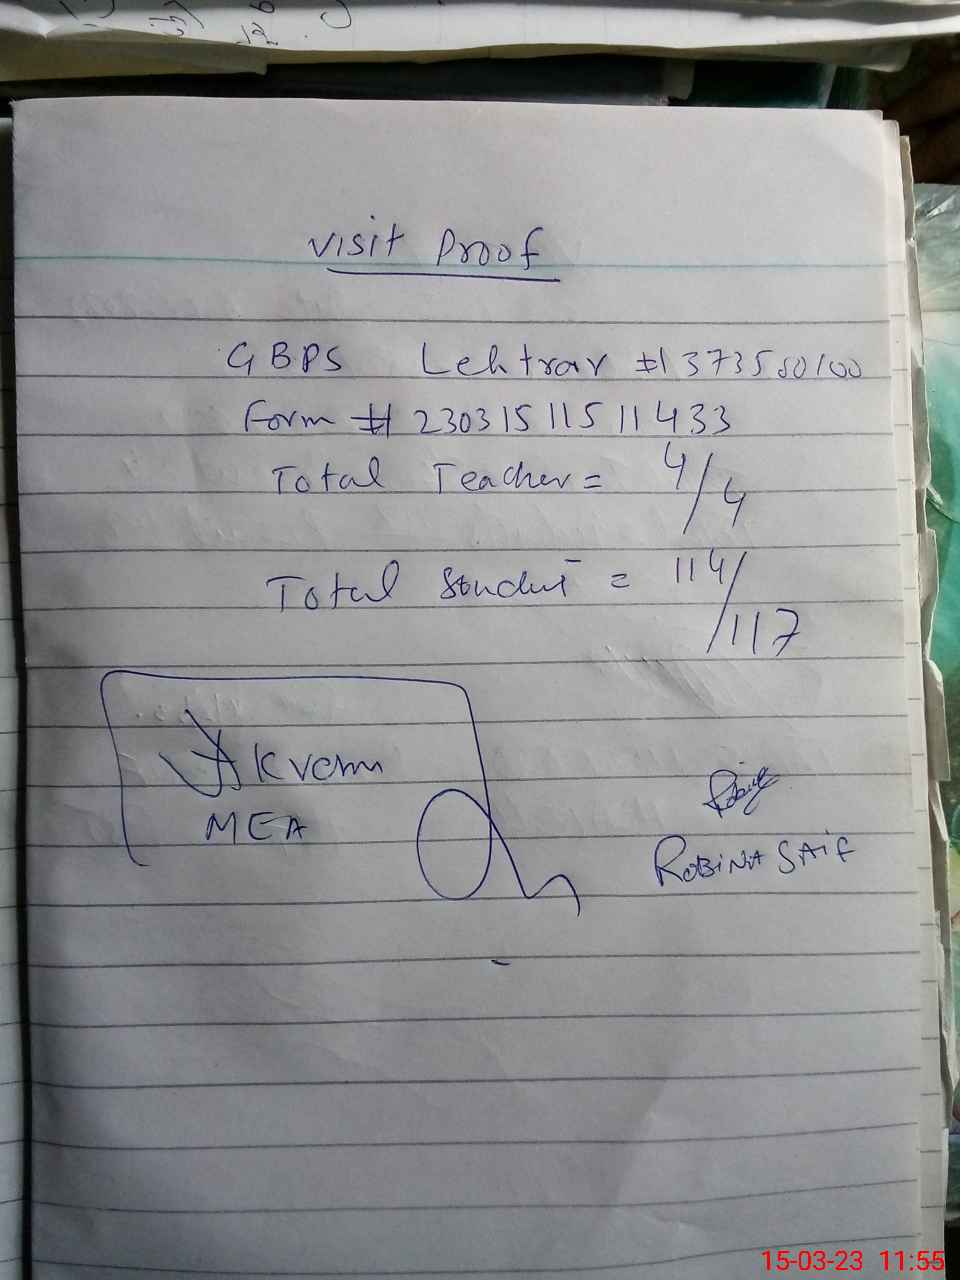 Visit Proof
GBPS Lehtrar #1373550100
Form # 230315115 11433
Total Teacher = 4/4
Total Student = 114/117
Akram
MEA
ROBINA SAIF
15-03-23 11:55